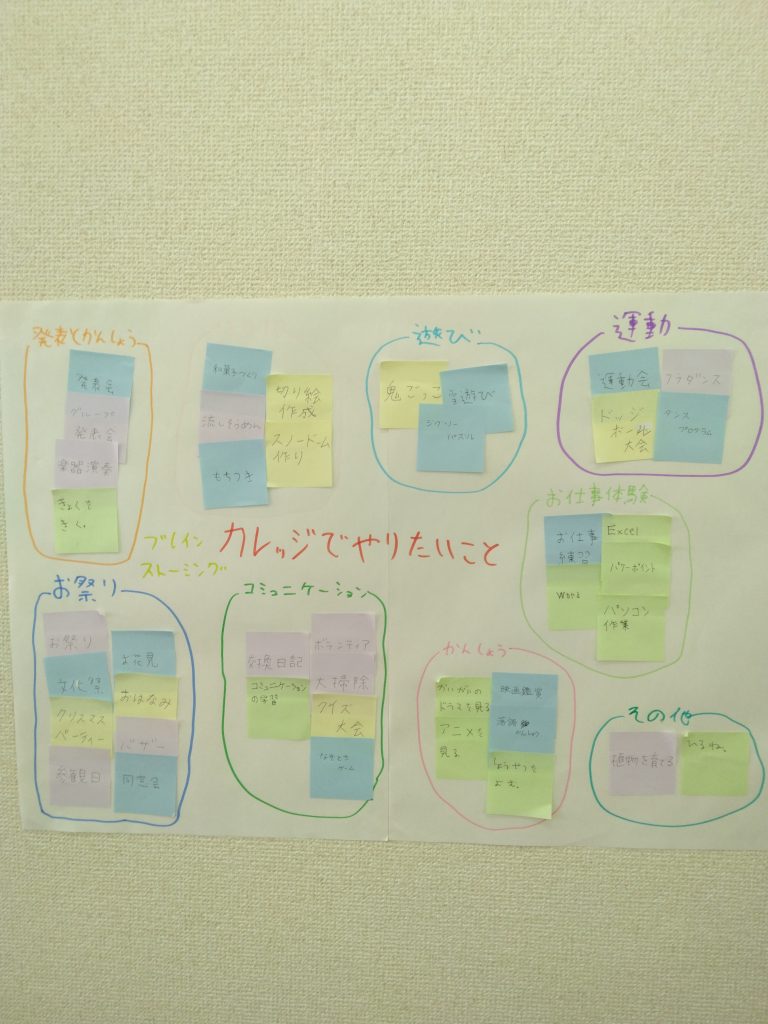 発表とかんしょう
発表会
グループ
発表会
楽器演奏
きょくを
きく。
和菓子づくり
流しそうめん
もちつき
切り絵
作成
スノードーム
作り
遊び
鬼ごっこ
雪遊び
ジグソー
パズル
運動
運動会
フラダンス
ドッジ
ボール
大会
ダンス
プログラム
ブレイン
ストーミング
カレッジでやりたいこと
お仕事体験
お仕事
練習
Excel
パワーポイント
Word
パソコン
作業
お祭り
お祭り
お花見
文化祭
おはなみ
クリスマス
パーティー
バザー
参観日
同窓会
コミュニケーション
交換日記
コミュニケーション
の学習
ボランティア
大掃除
クイズ
大会
なぞとき
ゲーム
かんしょう
かいがいの
ドラマを見る
アニメを
見る
映画鑑賞
落語
かんしょう
その他
植物を育てる
ひるね。